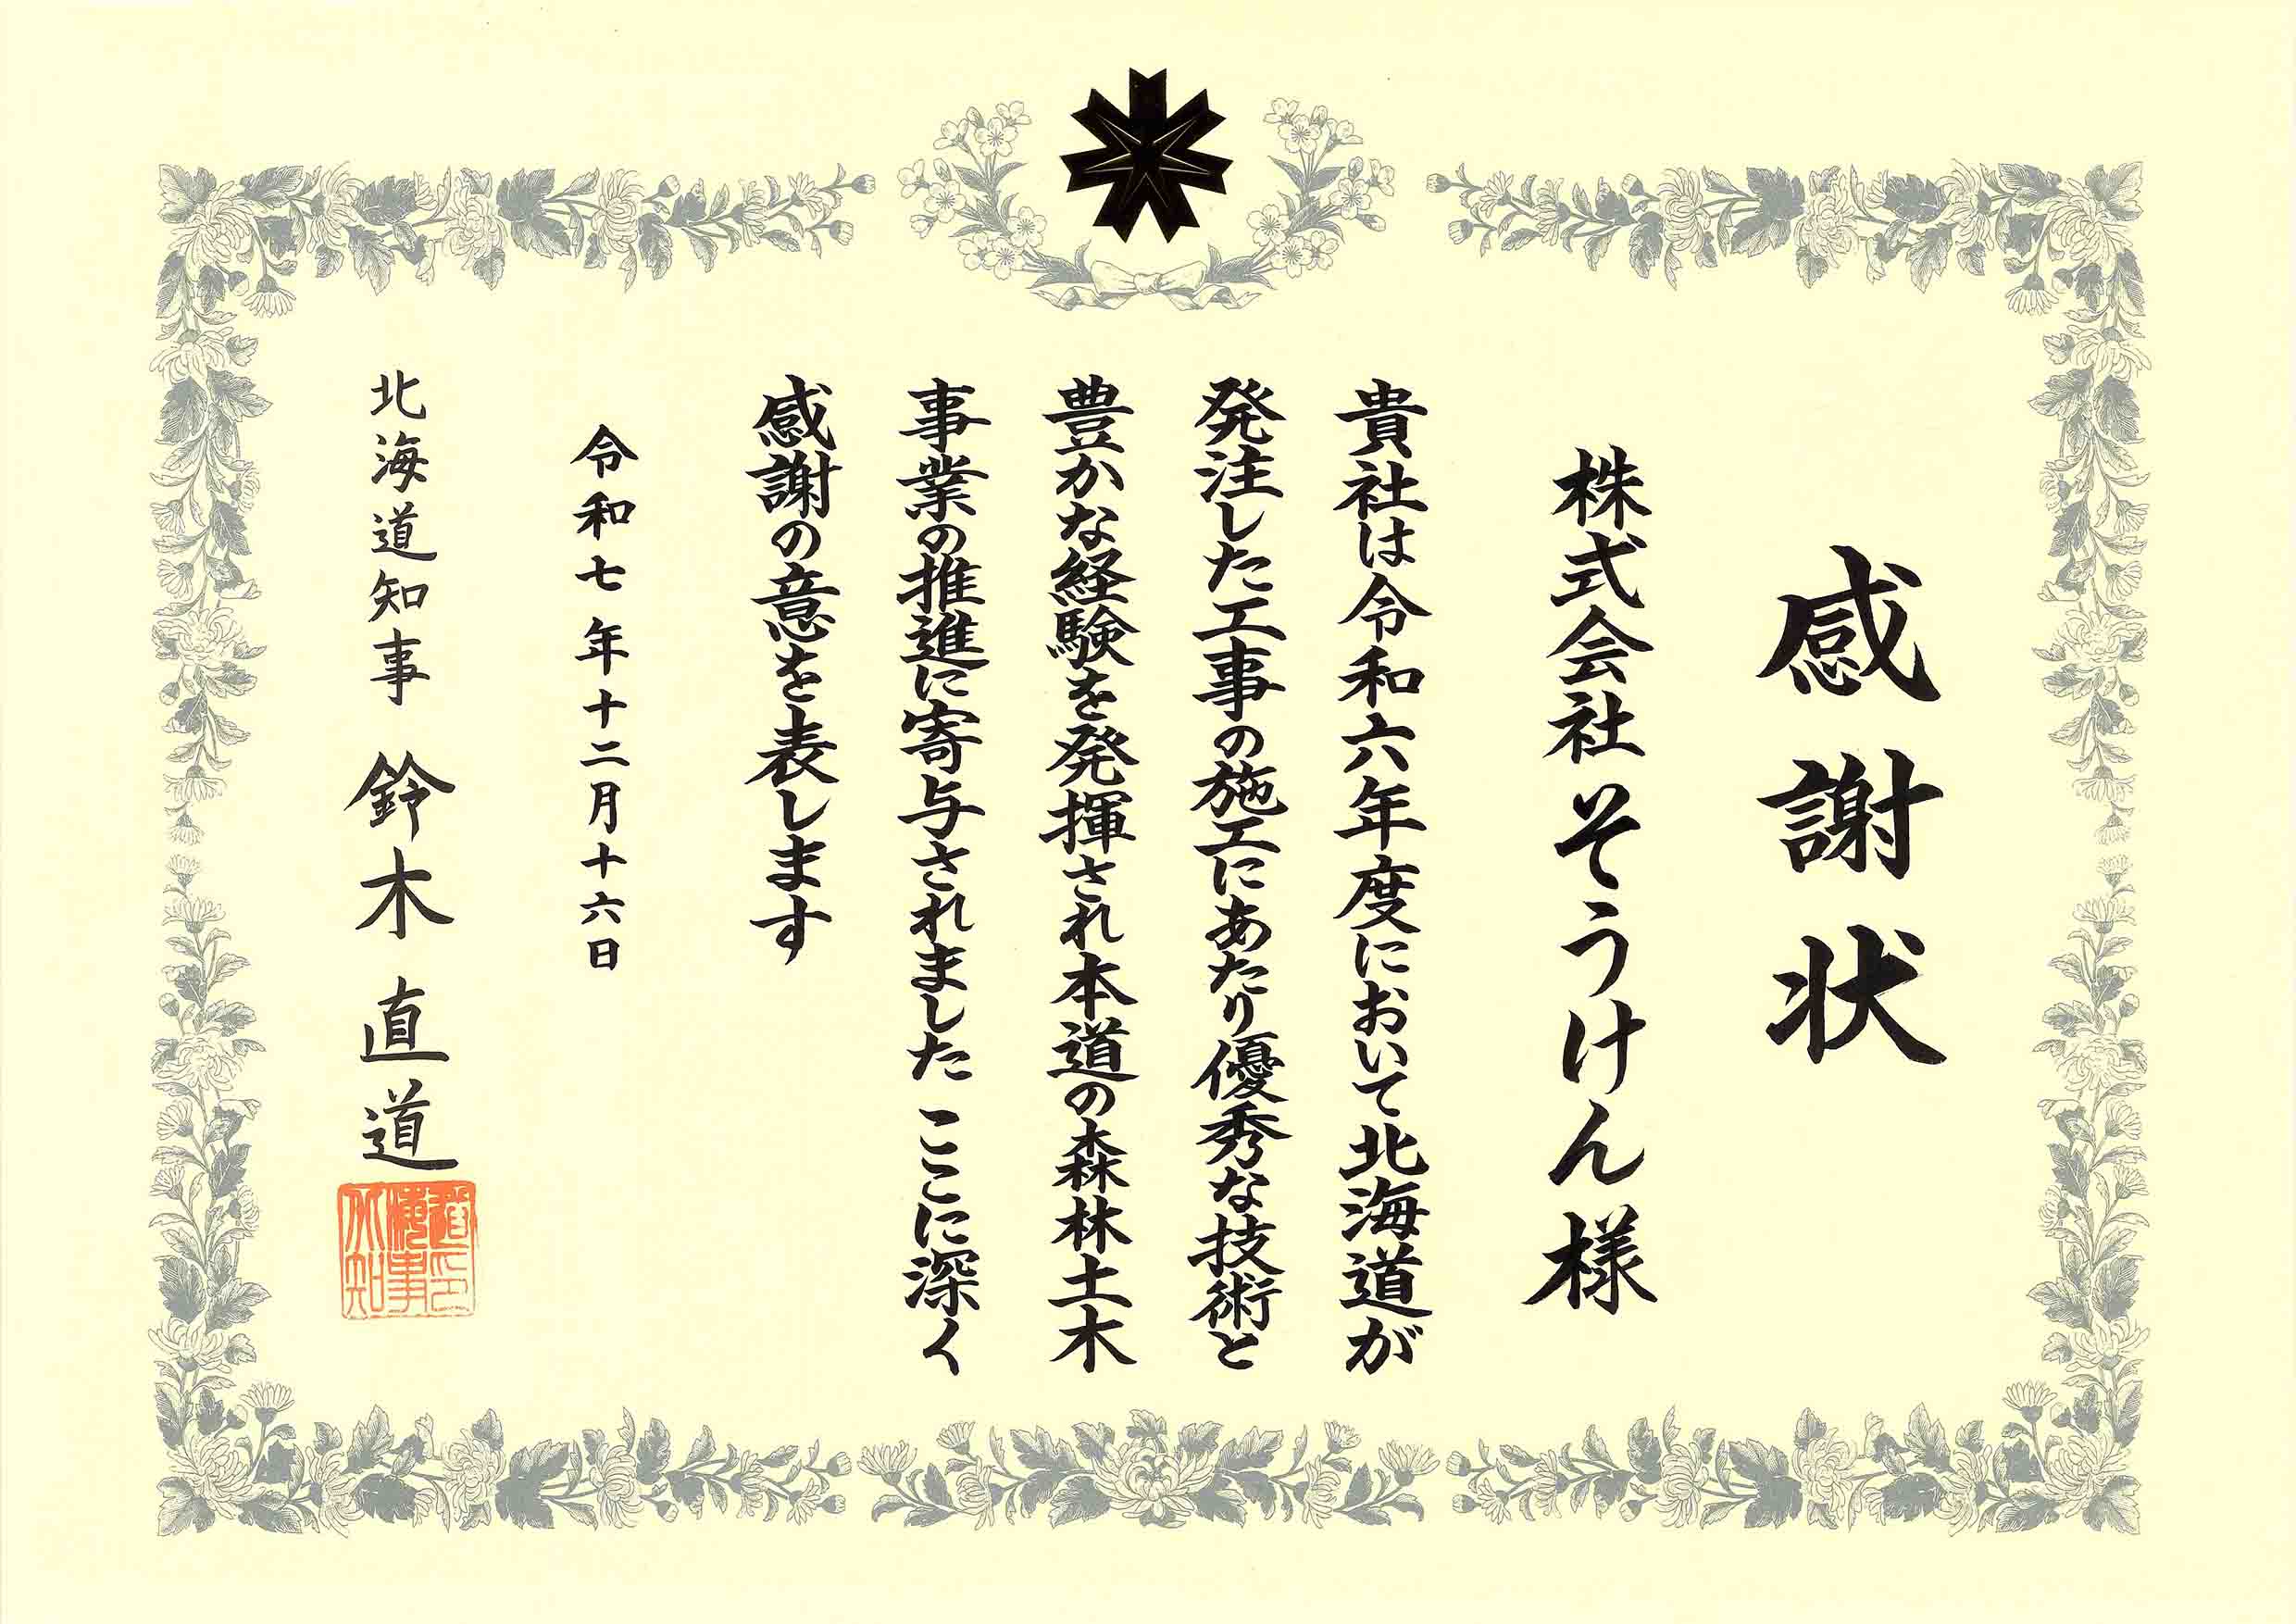 感謝状
株式会社そうけん様
貴社は令和六年度において北海道が
発注した工事の施工にあたり優秀な技術と
豊かな経験を発揮され本道の森林土木
事業の推進に寄与されました ここに深く
感謝の意を表します
令和七年十二月十六日
北海道知事 鈴木直道
北海道知事印